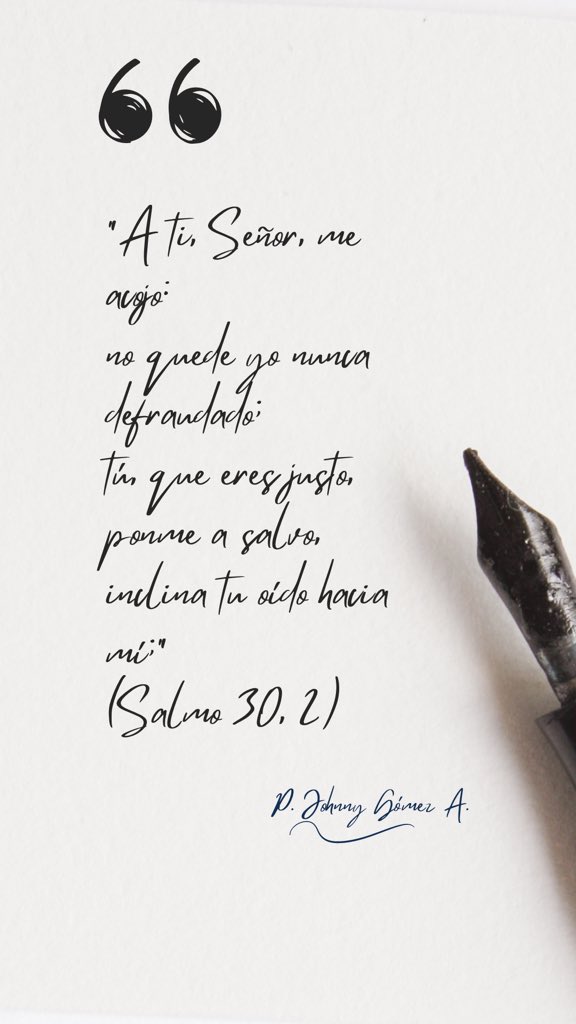 "A ti, Señor, me
acojo:
no quede yo nunca
defraudado;
tú, que eres justo,
ponme a salvo,
inclina tu oído hacia
mí;"
(Salmo 30, 2)
P. Johnny Gómez A.